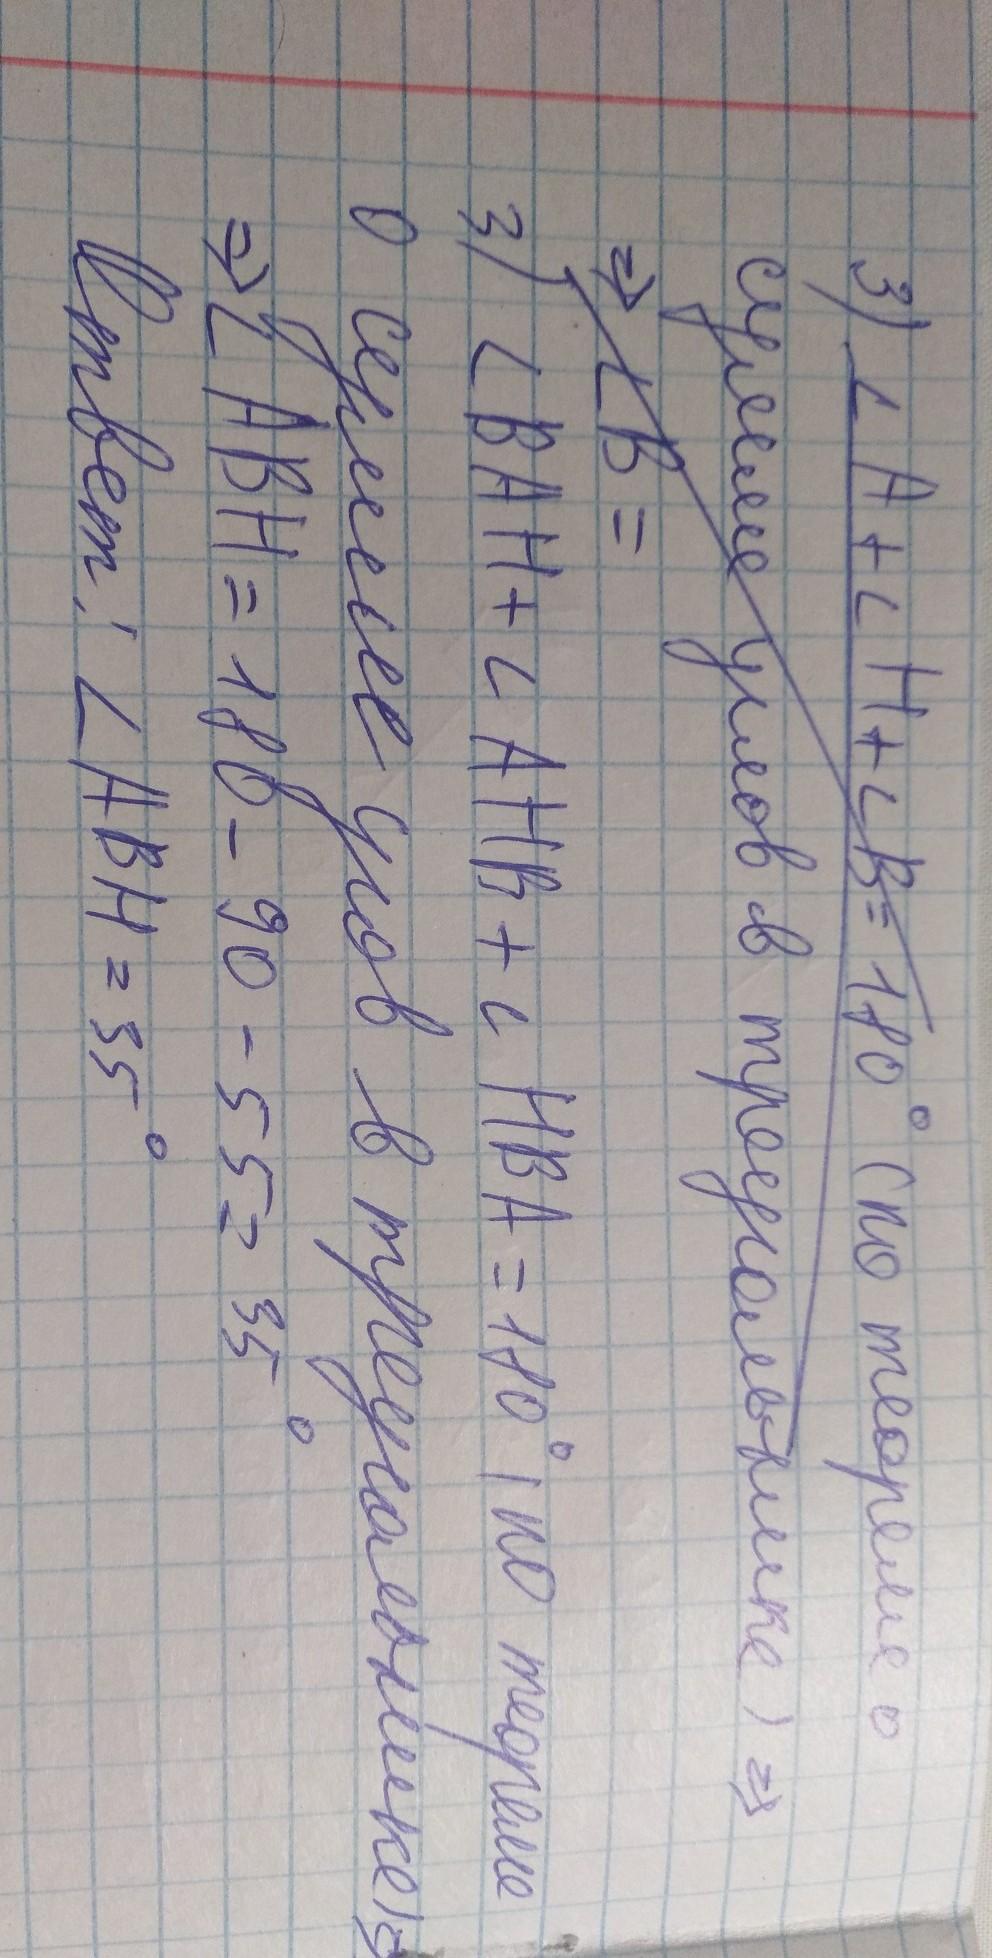 3) ∠A+∠H+∠B=180° (по теореме о
сумме углов в треугольнике) ⇒
⇒ ∠B =
3) ∠BAH+∠AHB+∠HBA=180° (по теореме
о сумме углов в треугольнике)⇒
⇒∠ABH=180-90-55=35°
Ответ: ∠ABH=35°